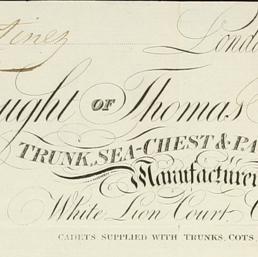 Londo
ought OF Thomas
TRUNK, SEA-CHEST & PA
Manufacturer
White Lion Court C
CADETS SUPPLIED WITH TRUNKS, COTS,